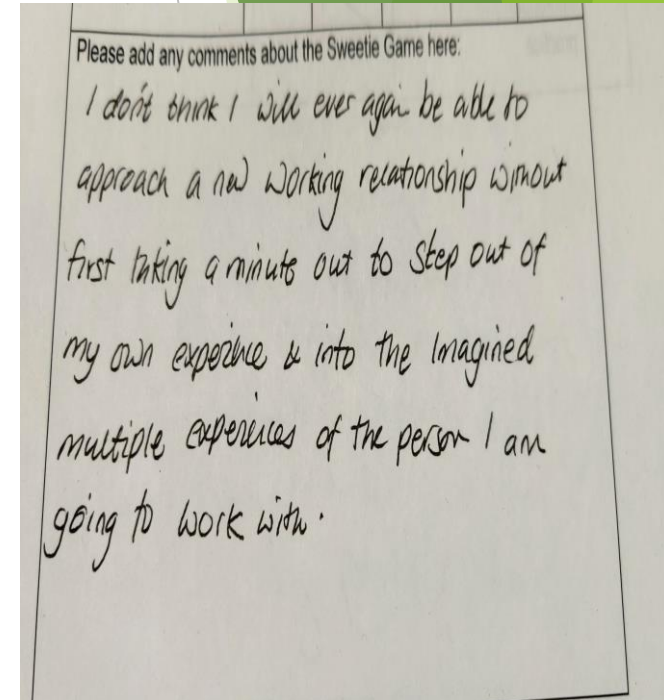 Please add any comments about the Sweetie Game here:
I don't think I will ever again be able to
approach a new working relationship without
first taking a minute out to step out of
my own experience & into the Imagined
multiple experiences of the person I am
going to work with.